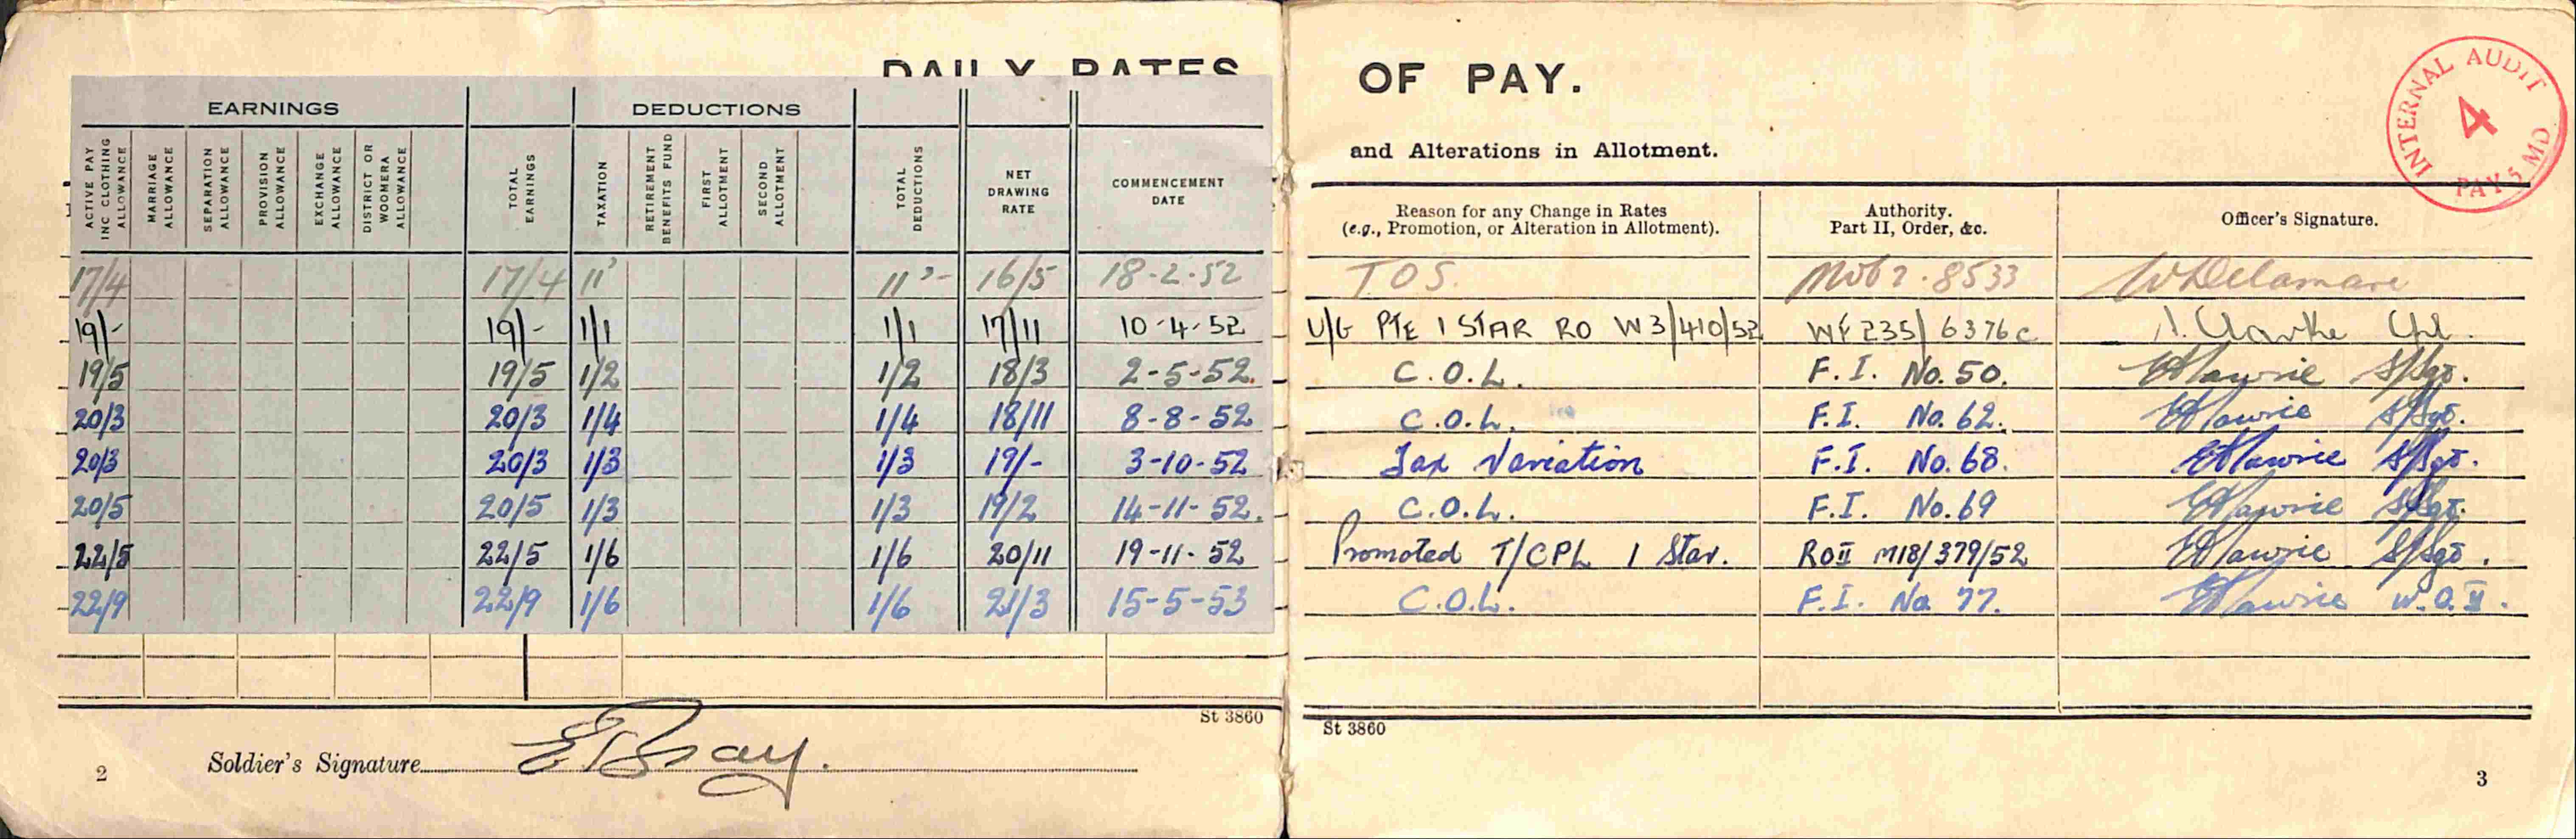 DAILY RATES OF PAY.
and Alterations in Allotment.
INTERNAL AUDIT
4
PAY 5 MD
EARNINGS DEDUCTIONS
ACTIVE PAY INC CLOTHING ALLOWANCE
MARRIAGE ALLOWANCE
SEPARATION ALLOWANCE
PROVISION ALLOWANCE
EXCHANGE ALLOWANCE
DISTRICT OR WOOMERA ALLOWANCE
TOTAL EARNINGS
TAXATION
RETIREMENT BENEFITS FUND
FIRST ALLOTMENT
SECOND ALLOTMENT
TOTAL DEDUCTIONS
NET DRAWING RATE
COMMENCEMENT DATE
Reason for any Change in Rates
(e.g., Promotion, or Alteration in Allotment).
Authority.
Part II, Order, &c.
Officer's Signature.
17/4 17/4 11' 11'- 16/5 18-2-52 TOS. 8533 W Delamare
19/- 19/- 1/1 1/1 17/11 10-4-52 U/G PTE 1 STAR RO W3/410/52 WE 235/6376c Clarke
19/5 19/5 1/2 1/2 18/3 2-5-52. C.O.L. F.I. No. 50. S/Sgt.
20/3 20/3 1/4 1/4 18/11 8-8-52 C.O.L. F.I. No. 62. S/Sgt.
20/3 20/3 1/3 1/3 19/- 3-10-52 Tax Variation F.I. No. 68. S/Sgt.
20/5 20/5 1/3 1/3 19/2 14-11-52. C.O.L. F.I. No. 69 S/Sgt.
22/5 22/5 1/6 1/6 20/11 19-11-52 Promoted T/CPL 1 Star. RO II M18/379/52 S/Sgt.
22/9 22/9 1/6 1/6 21/3 15-5-53 C.O.L. F.I. No. 77. W.O.II.
St 3860 St 3860
Soldier's Signature E Bray.
2 3